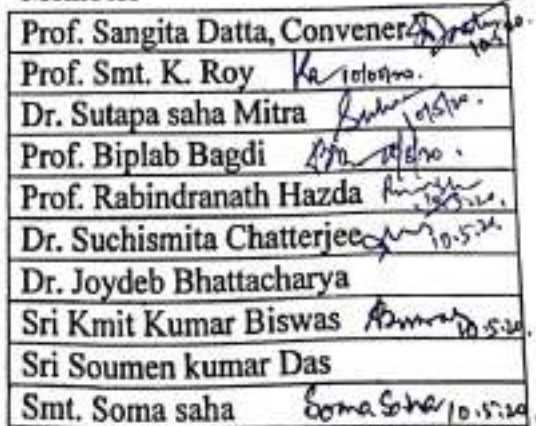 Prof. Sangita Datta, Convener 10.5.20.
Prof. Smt. K. Roy 10/05/20.
Dr. Sutapa saha Mitra 10/5/20.
Prof. Biplab Bagdi
Prof. Rabindranath Hazda 10.5.20.
Dr. Suchismita Chatterjee 10.5.20
Dr. Joydeb Bhattacharya
Sri Kmit Kumar Biswas 10.5.20.
Sri Soumen kumar Das
Smt. Soma saha Soma Saha 10.5.20.